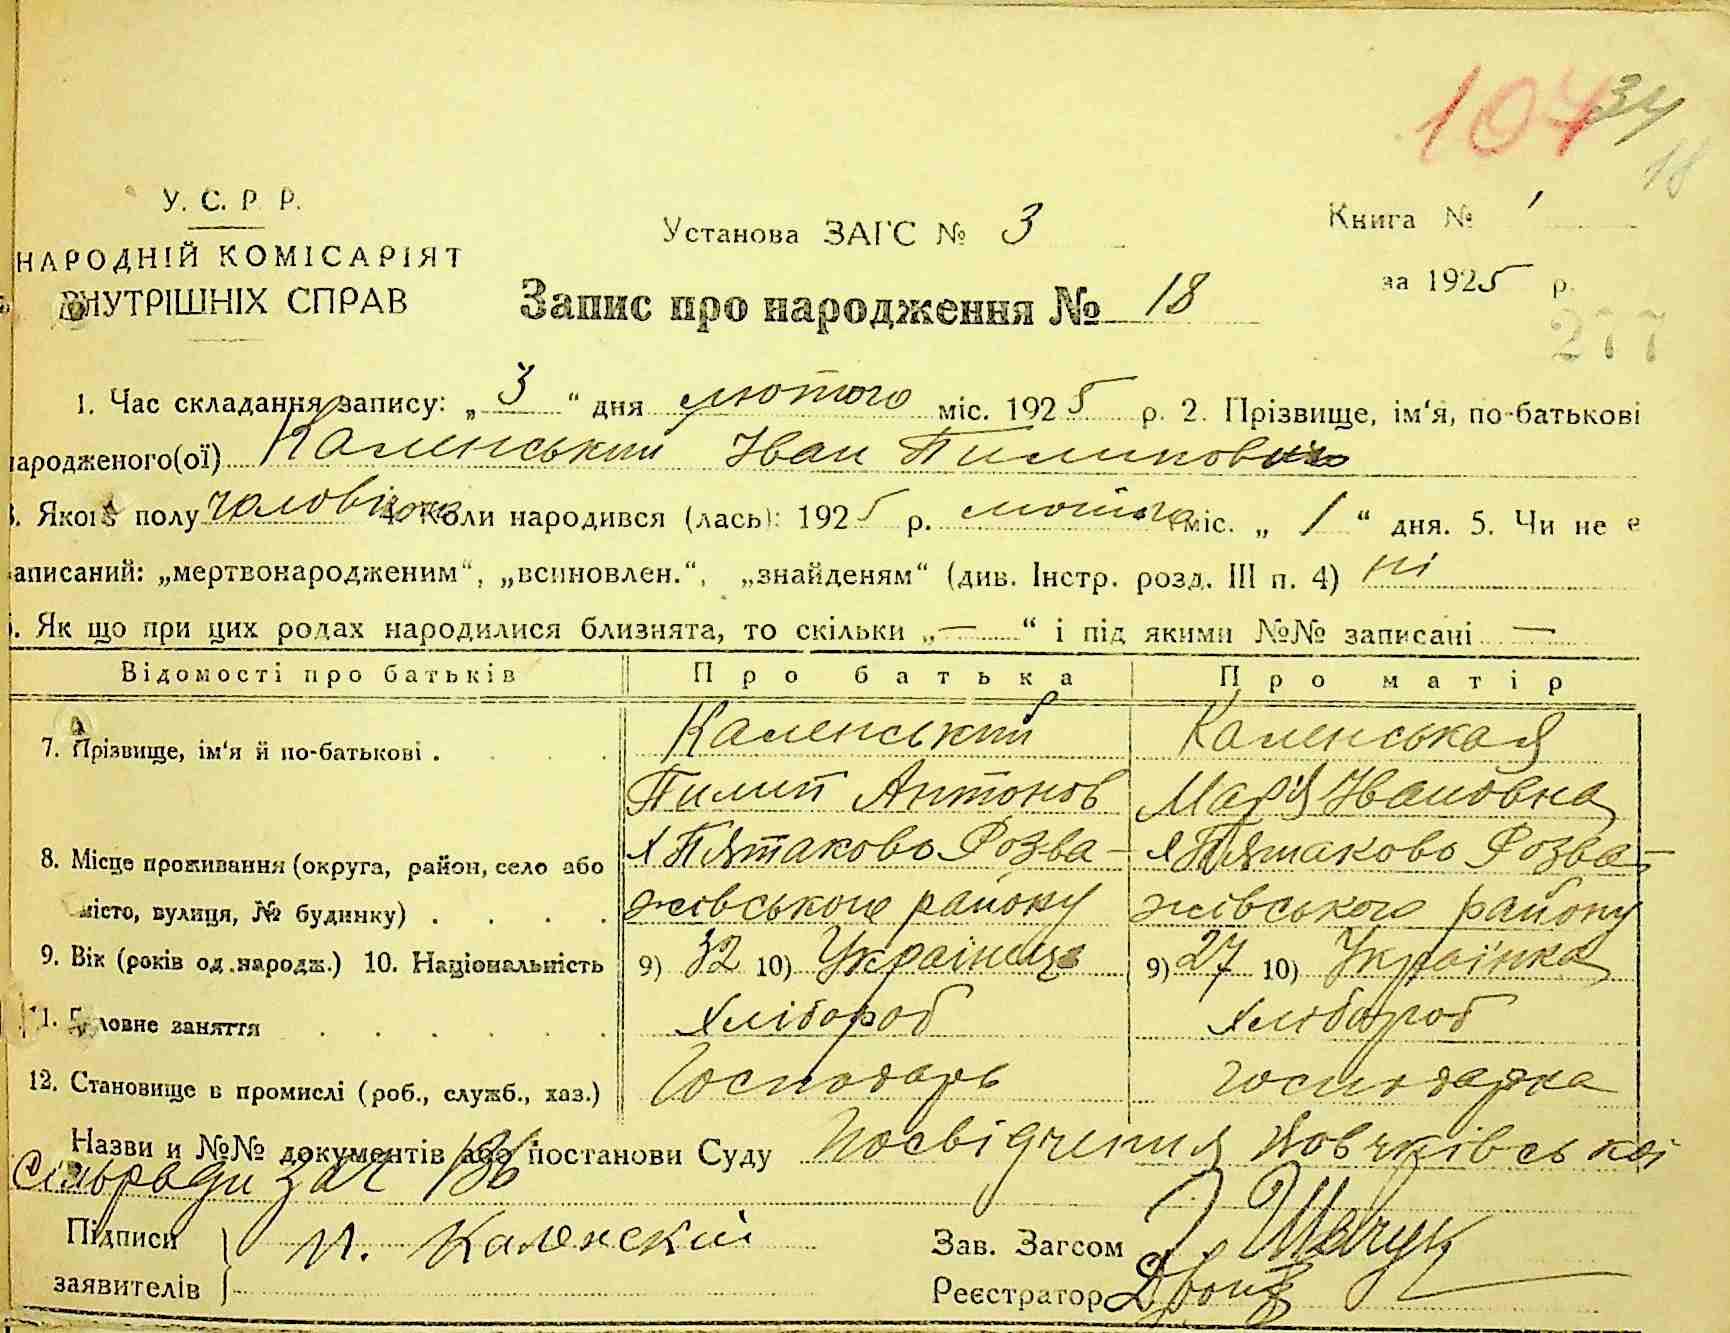 104 34
18
У. С. Р. Р.
НАРОДНІЙ КОМІСАРІЯТ
ВНУТРІШНІХ СПРАВ
Установа ЗАГС № 3
Книга № 1
за 1925 р.
Запис про народження № 18
277
1. Час складання запису: „ 3 “ дня лютого міс. 1925 р. 2. Прізвище, ім‘я, по-батькові
народженого(ої) Каленський Іван Пилипович
3. Якого полу чоловічого 4. Коли народився (лась): 1925 р. лютого міс. „ 1 “ дня. 5. Чи не є
записаний: „мертвонародженим“, „всиновлен.“, „знайденям“ (див. Інстр. розд. III п. 4) ні
6. Як що при цих родах народилися близнята, то скільки „—“ і під якими №№ записані —
Відомості про батьків Про батька Про матір
7. Прізвище, ім‘я й по-батькові . Каленський Каленськая
Пилип Антонов Марія Івановна
8. Місце проживання (округа, район, село або х Пятаково Розва- х Пятаково Розва-
місто, вулиця, № будинку) жівського району жівського району
9. Вік (років од народж.) 10. Національність 9) 32 10) Українець 9) 27 10) Українка
11. Головне заняття Хлібороб Хлібороб
12. Становище в промислі (роб., служб., хаз.) Господарь господарка
Назви и №№ документів або постанови Суду Посвідчення Вовчківської
Сільради за № 136
Підписи заявителів П. Каленскій
Зав. Загсом
Реєстратор